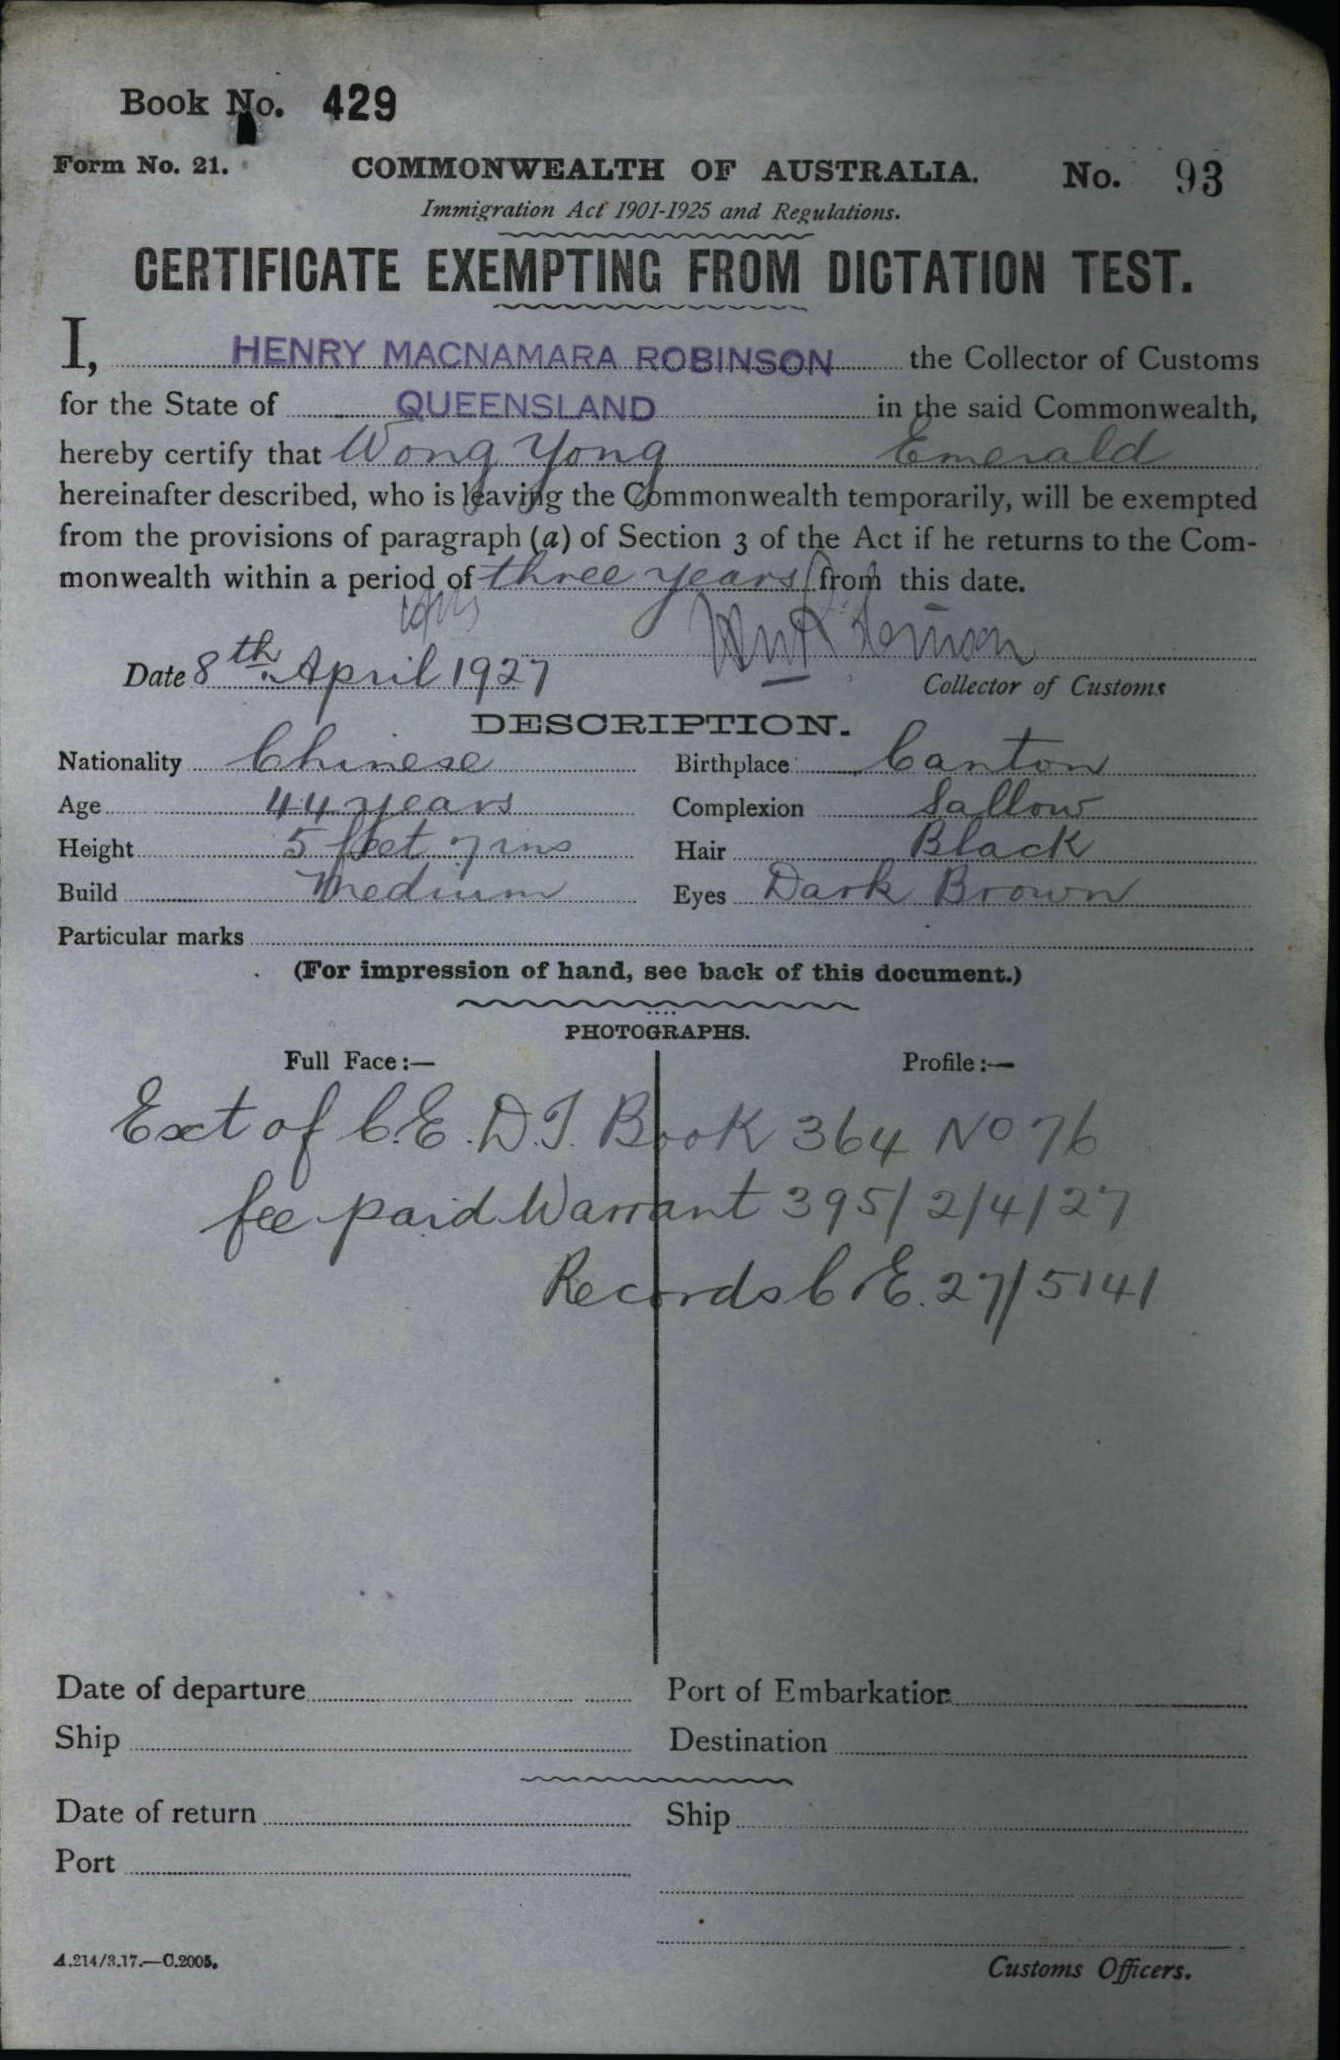 Book No. 429
Form No. 21. COMMONWEALTH OF AUSTRALIA. No. 93
Immigration Act 1901-1925 and Regulations.
CERTIFICATE EXEMPTING FROM DICTATION TEST.
I, HENRY MACNAMARA ROBINSON the Collector of Customs
for the State of QUEENSLAND in the said Commonwealth,
hereby certify that Wong Yong Emerald
hereinafter described, who is leaving the Commonwealth temporarily, will be exempted
from the provisions of paragraph (a) of Section 3 of the Act if he returns to the Com-
monwealth within a period of three years from this date.
Date 8th April 1927
Collector of Customs
DESCRIPTION.
Nationality Chinese Birthplace Canton
Age 44 years Complexion Sallow
Height 5 feet 7 ins Hair Black
Build Medium Eyes Dark Brown
Particular marks
(For impression of hand, see back of this document.)
PHOTOGRAPHS.
Full Face:— Profile:—
Ext of C.E.D.T. Book 364 No 76
fee paid Warrant 395/ 2/4/27
Records C & E. 27/5141
Date of departure Port of Embarkation
Ship Destination
Date of return Ship
Port
A.214/3.17.—C.2005. Customs Officers.